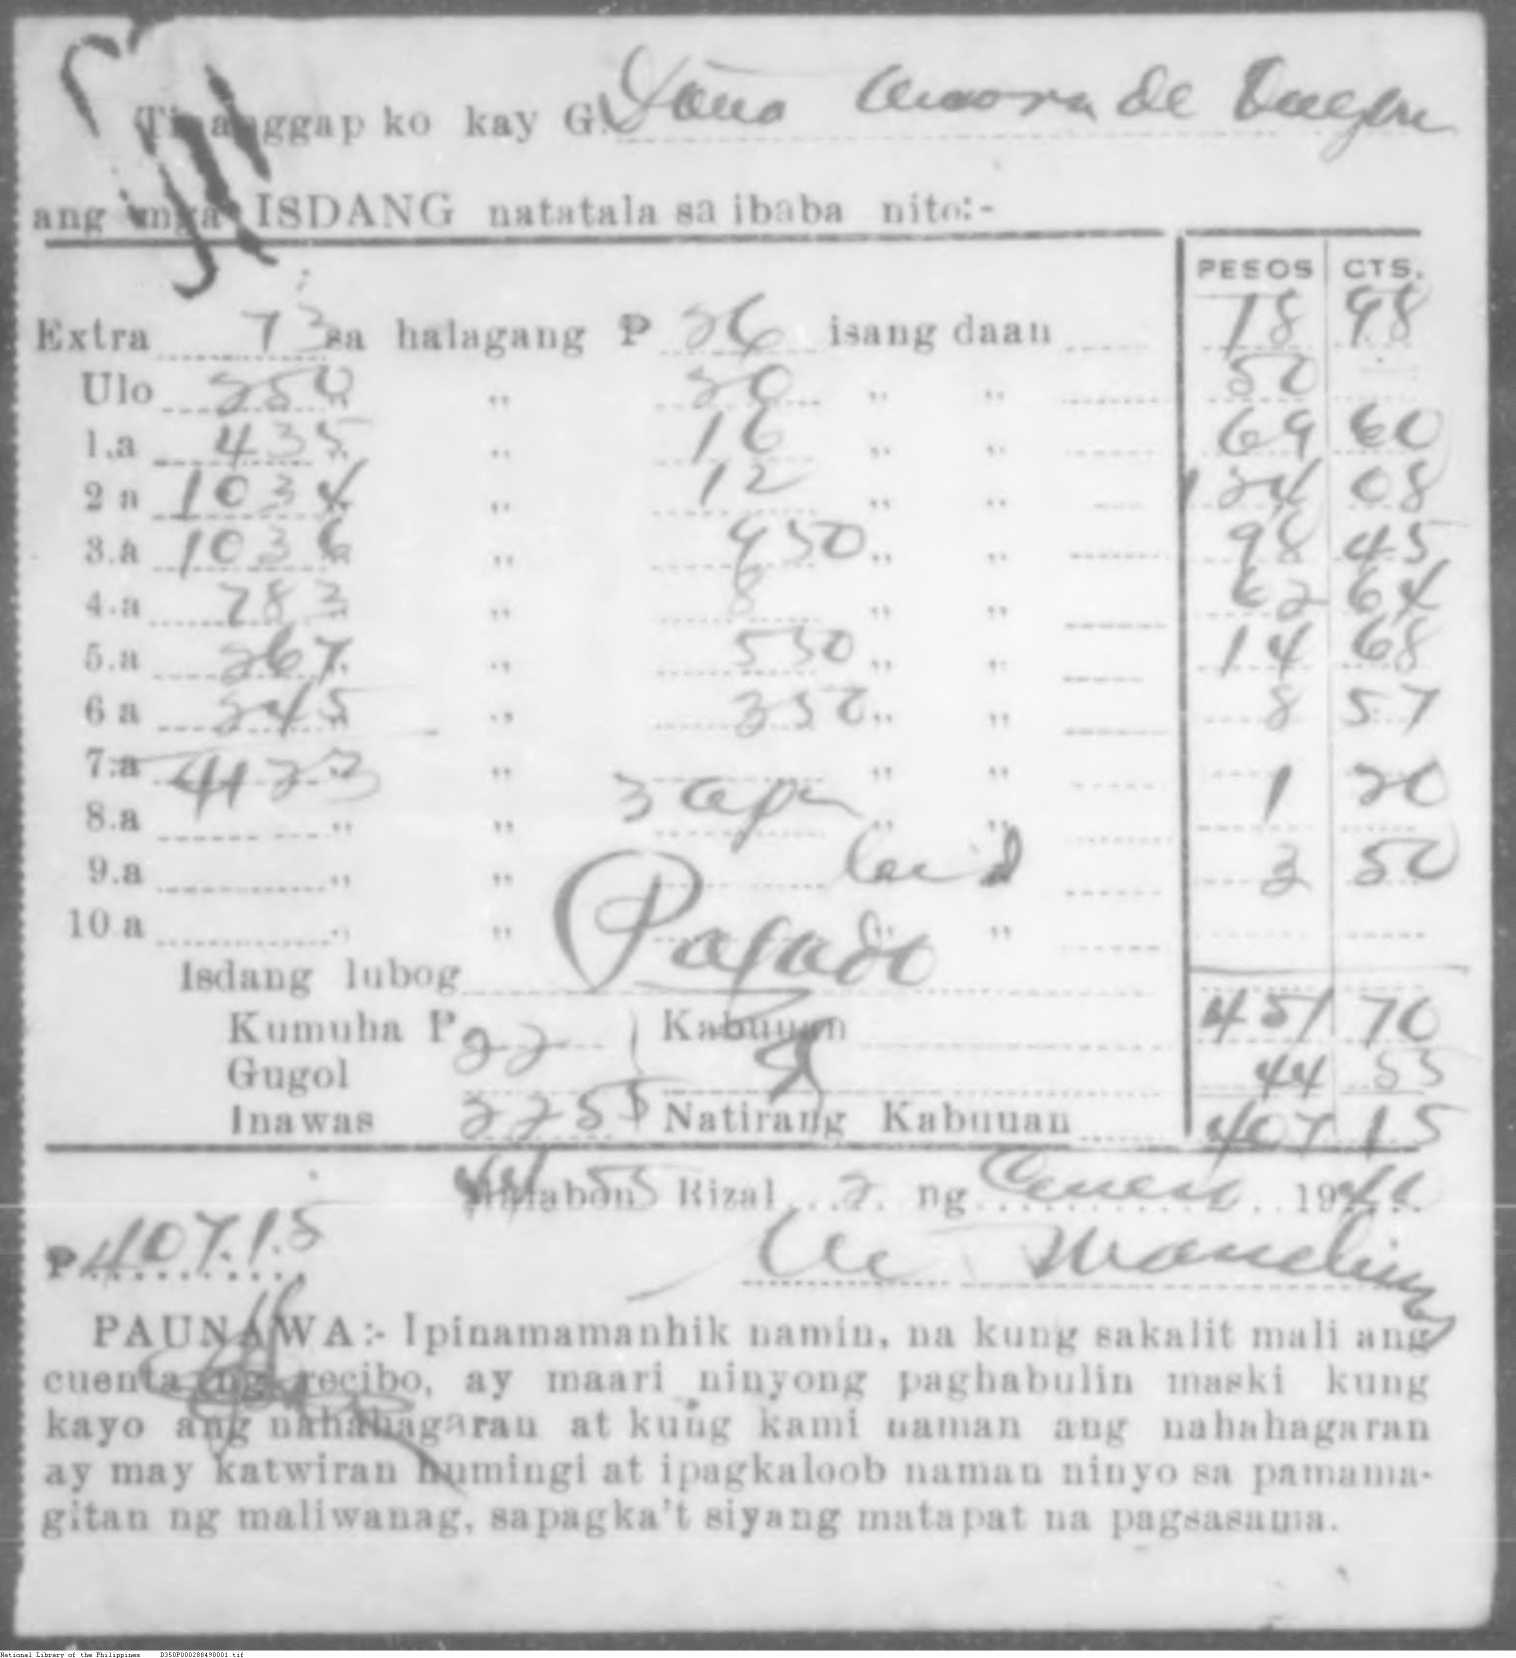 Tinanggap ko kay G. Doña Aurora de Quezon
ang mga ISDANG natatala sa ibaba nito:-
PESOS CTS.
Extra 73 sa halagang ₱ 26 isang daan 18 98
Ulo 250 „ 20 „ „ 50
1.a 435 „ 16 „ „ 69 60
2 a 1034 „ 12 „ „ 124 08
3.a 1036 „ 950 „ „ 98 45
4.a 783 „ 8 „ „ 62 64
5.a 267 „ 550 „ „ 14 68
6 a 245 „ 350 „ „ 8 57
7.a 4123 „ „ „ 1 20
8.a „ „ 3 „ „
9.a „ „ 3 50
10.a „ „ Pagado „ „
Isdang lubog
Kumuha P 22 Kabuuan 451 70
Gugol 44 55
Inawas 22 55 Natirang Kabuuan 407 15
44 55
Malabon Rizal 2 ng Enero 19
₱ 407.15
PAUNAWA:- Ipinamamanhik namin, na kung sakalit mali ang
cuenta ng recibo, ay maari ninyong paghabulin maski kung
kayo ang nahahagaran at kung kami naman ang nahahagaran
ay may katwiran humingi at ipagkaloob naman ninyo sa pamama-
gitan ng maliwanag, sapagka't siyang matapat na pagsasama.
National Library of the Philippines D350P000288498001.tif